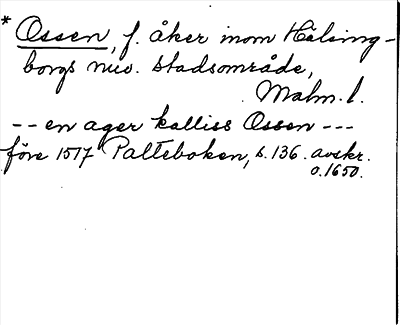 * Ossen, f. åker inom Hälsing-
borgs nuv. stadsområde,
Malm. l.
-- en ager kalliss Ossen ---
före 1517 Palteboken, s. 136. avskr.
o. 1650.